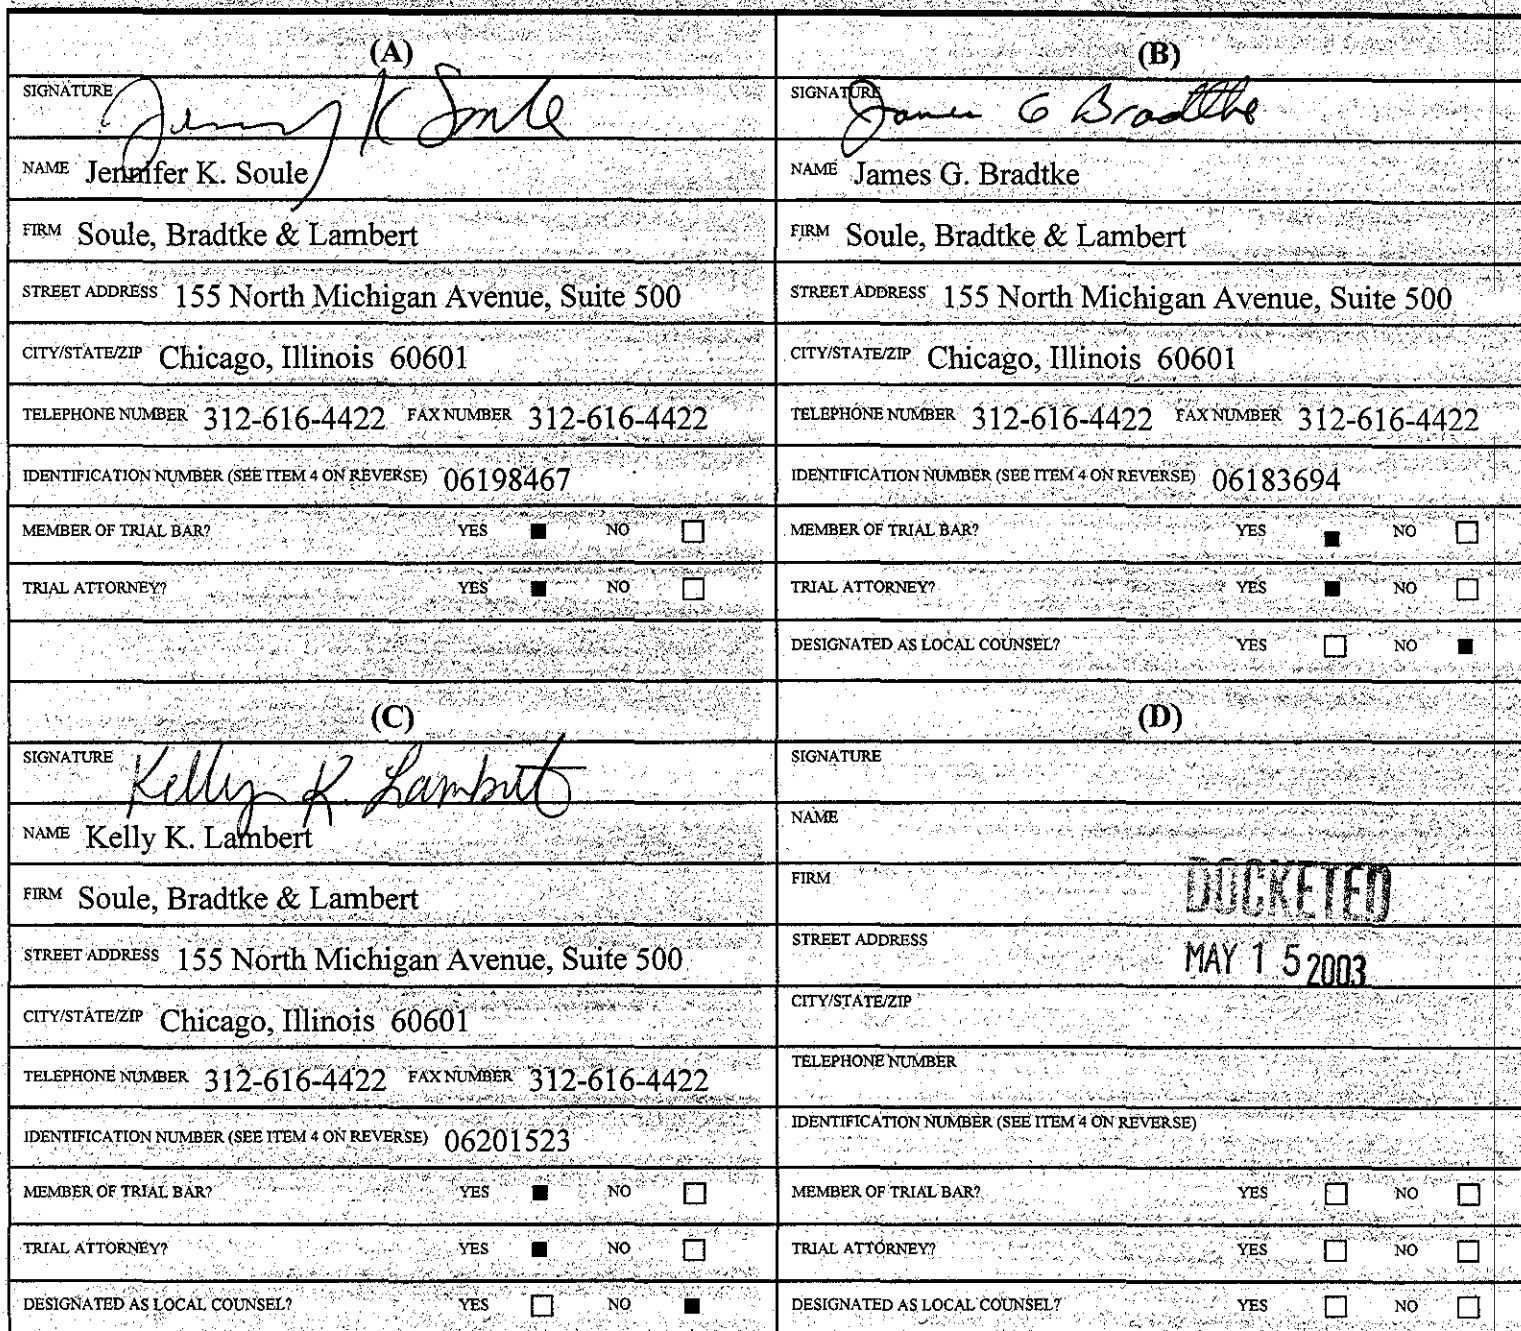 (A)
SIGNATURE Jennifer K Soule
NAME Jennifer K. Soule
FIRM Soule, Bradtke & Lambert
STREET ADDRESS 155 North Michigan Avenue, Suite 500
CITY/STATE/ZIP Chicago, Illinois 60601
TELEPHONE NUMBER 312-616-4422 FAX NUMBER 312-616-4422
IDENTIFICATION NUMBER (SEE ITEM 4 ON REVERSE) 06198467
MEMBER OF TRIAL BAR? YES ■ NO □
TRIAL ATTORNEY? YES ■ NO □
(B)
SIGNATURE James G Bradtke
NAME James G. Bradtke
FIRM Soule, Bradtke & Lambert
STREET ADDRESS 155 North Michigan Avenue, Suite 500
CITY/STATE/ZIP Chicago, Illinois 60601
TELEPHONE NUMBER 312-616-4422 FAX NUMBER 312-616-4422
IDENTIFICATION NUMBER (SEE ITEM 4 ON REVERSE) 06183694
MEMBER OF TRIAL BAR? YES ■ NO □
TRIAL ATTORNEY? YES ■ NO □
DESIGNATED AS LOCAL COUNSEL? YES □ NO ■
(C)
SIGNATURE Kelly K. Lambert
NAME Kelly K. Lambert
FIRM Soule, Bradtke & Lambert
STREET ADDRESS 155 North Michigan Avenue, Suite 500
CITY/STATE/ZIP Chicago, Illinois 60601
TELEPHONE NUMBER 312-616-4422 FAX NUMBER 312-616-4422
IDENTIFICATION NUMBER (SEE ITEM 4 ON REVERSE) 06201523
MEMBER OF TRIAL BAR? YES ■ NO □
TRIAL ATTORNEY? YES ■ NO □
DESIGNATED AS LOCAL COUNSEL? YES □ NO ■
(D)
SIGNATURE
NAME
FIRM
DOCKETED
STREET ADDRESS
MAY 15 2003
CITY/STATE/ZIP
TELEPHONE NUMBER
IDENTIFICATION NUMBER (SEE ITEM 4 ON REVERSE)
MEMBER OF TRIAL BAR? YES □ NO □
TRIAL ATTORNEY? YES □ NO □
DESIGNATED AS LOCAL COUNSEL? YES □ NO □